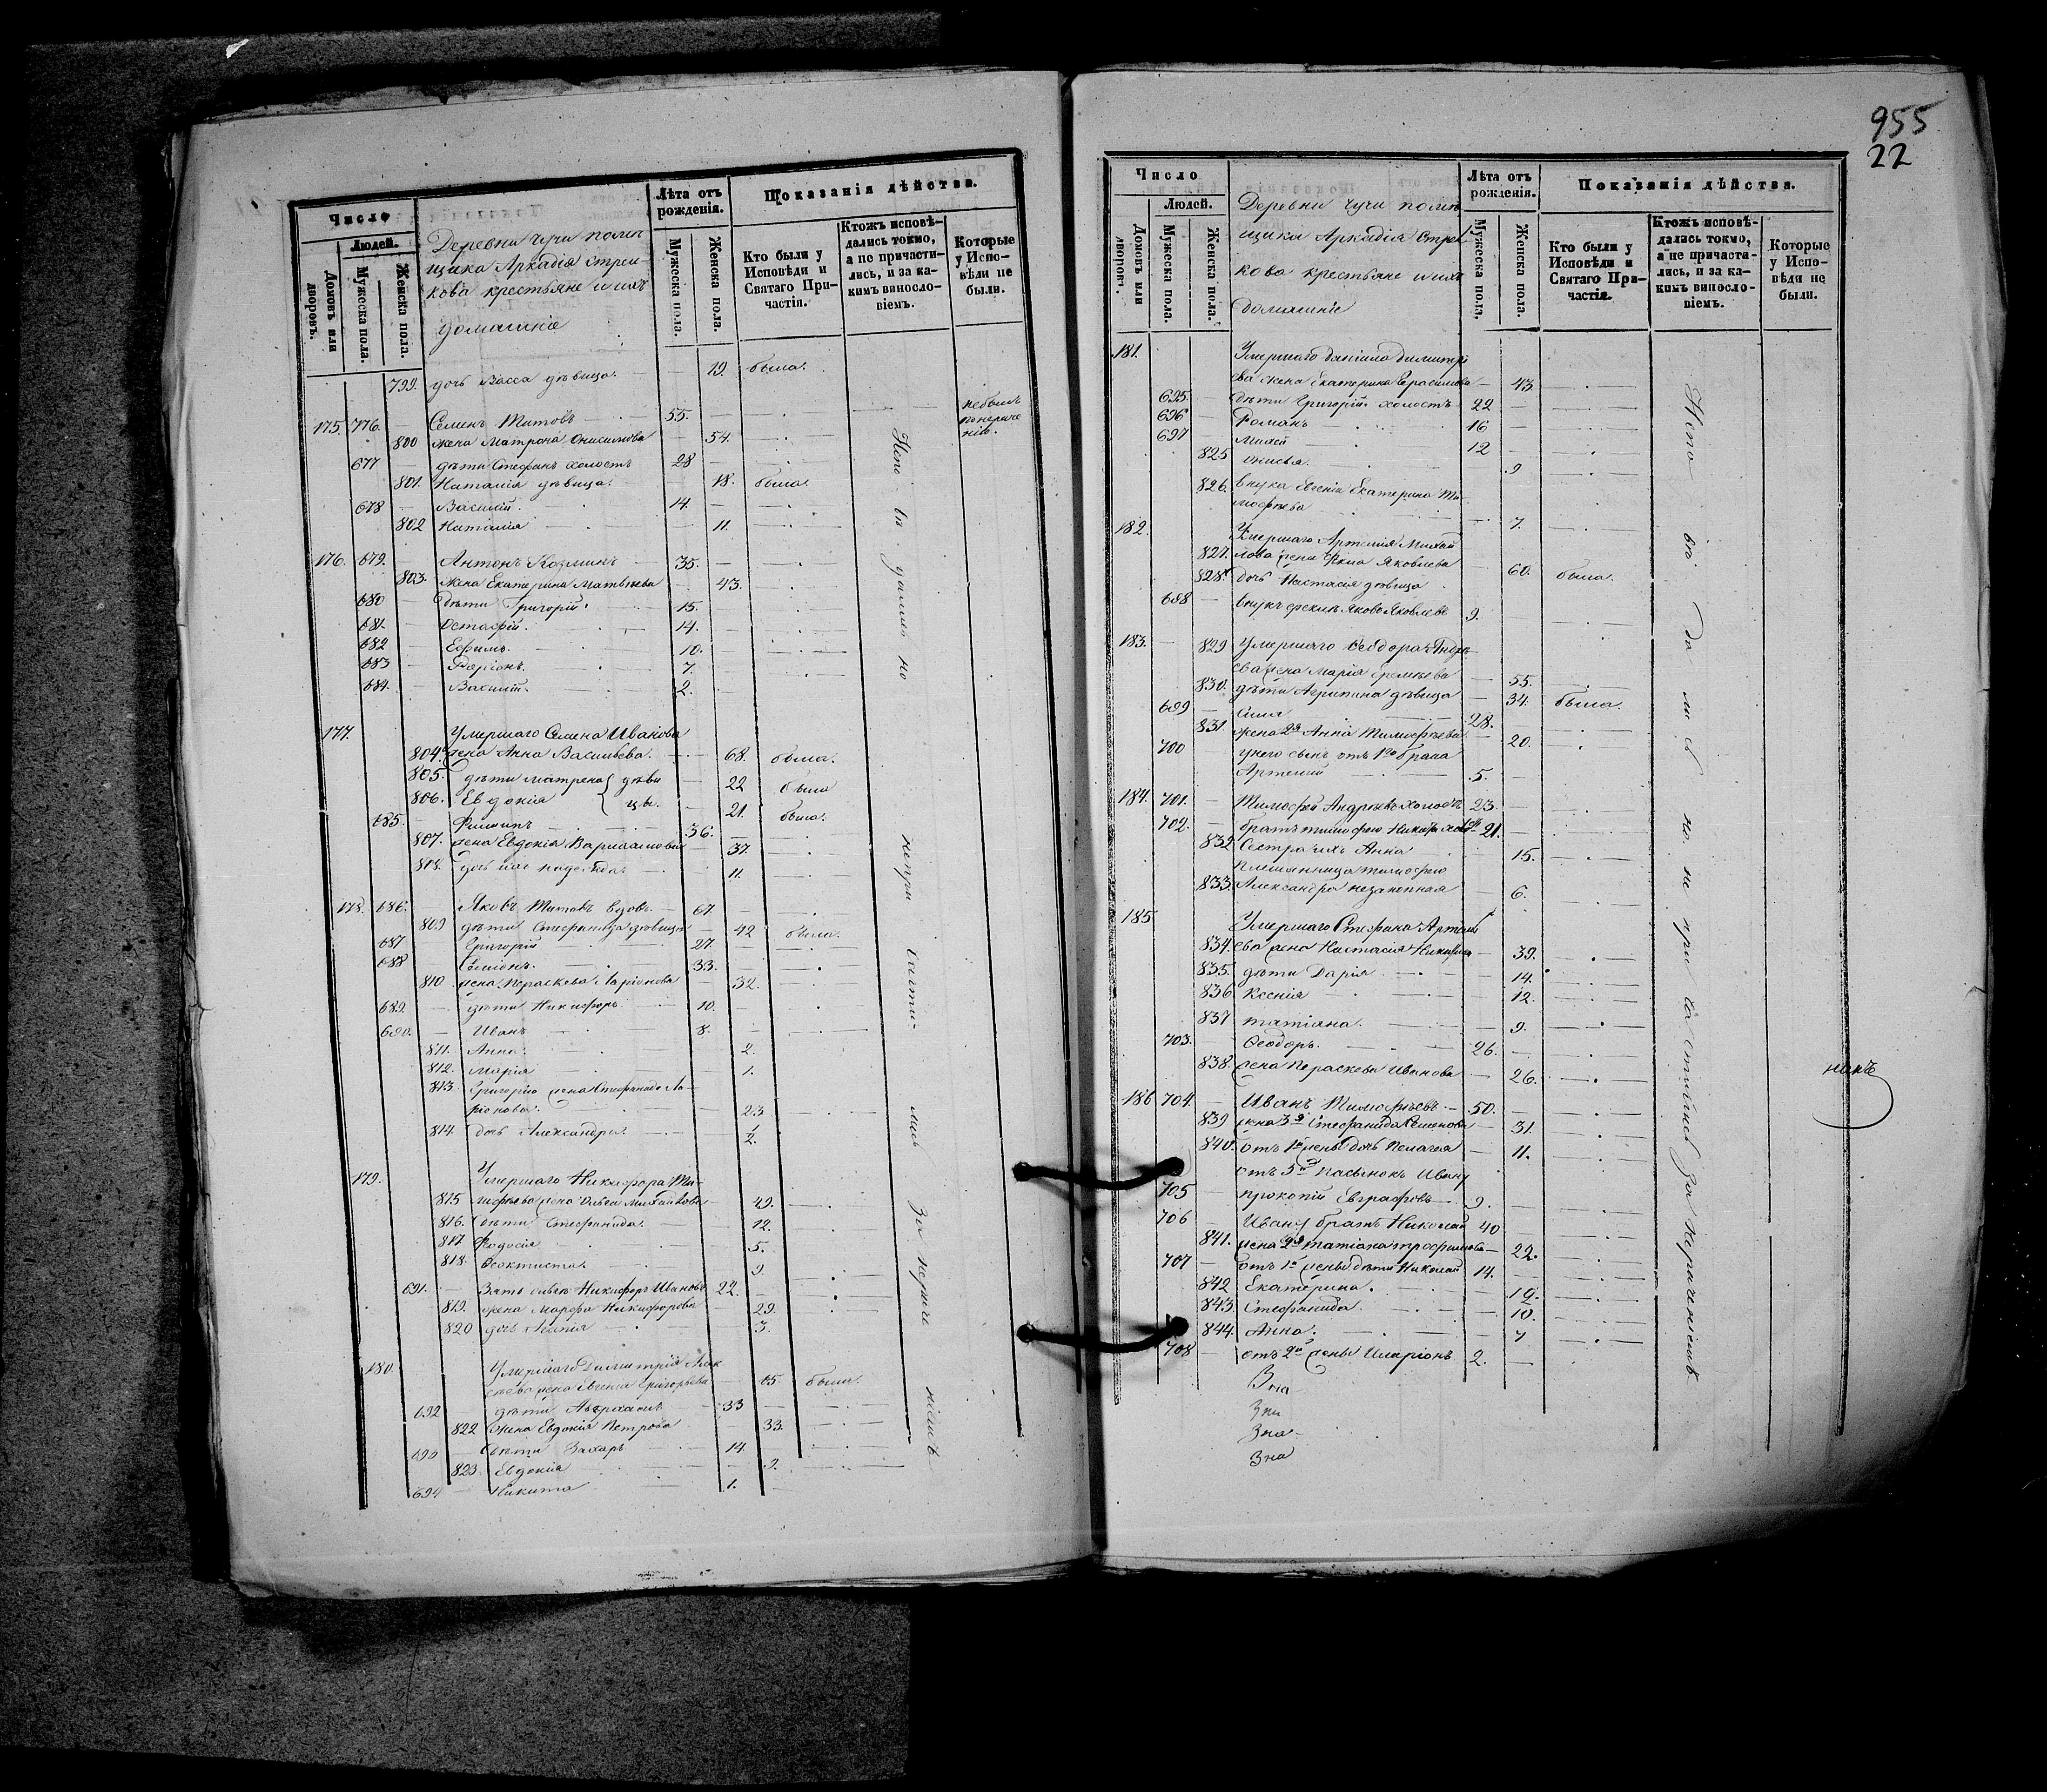 955
22
Число
Людей.
Домовъ или дворовъ.
Мужеска пола.
Женска пола.
Деревни Чучи помѣ-
щика Аркадія Стреш-
кова крестьяне и ихъ
домашніе
Лѣта отъ рожденія.
Мужеска пола.
Женска пола.
Показанія дѣйства.
Кто были у Исповѣди и Святаго При-частія.
Ктожъ исповѣ-дались токмо, а не причасти-лись, и за ка-кимъ винословіемъ.
Которые у Испо-вѣди не были.
799. дочь Васса дѣвица. 19. была.
175. 776. Семенъ Титовъ 55.
800 жена Матрона Онисимова 54.
677 дѣти Стефанъ холостъ 28
801. Наталія дѣвица. 18. была.
678 Василій. 14.
802 Наталія 11.
176. 679. Антонъ Козминъ 35.
803. жена Екатерина Матвѣева 43.
680 дѣти Григорій. 15.
681. Остафій. 14.
682 Ефимъ. 10.
683 Ларіонъ. 7.
684. Василій. 2.
177. Умершаго Семена Иванова
804. жена Анна Васильева. 68. была.
805. дѣти Матрена дѣви 22 была
806. Евдокія цы. 21. была.
685. Филипъ 36.
807. жена Евдокія Варламова 37.
808. дочь Надежда 11.
178. 686. Яковъ Титовъ вдовъ. 67
809 дѣти Стефанида дѣвица 42 была.
687 Григорій 27.
688 Симіонъ. 33.
810 жена Параскева Ларіонова 32.
689. дѣти Никифоръ 10.
690. Иванъ 8.
811. Анна. 2.
812. Марія 1.
813. Григорію жена Стефанида Ла-
ріонова. 23
814. дочь Александра. 1/2.
179. Умершаго Никифора Ти-
815 мофѣева жена Ольга Михайлова 49.
816. дѣти Стефанида. 12.
817. Федосія 5.
818. Феоктиста. 9.
691. Зять Никифоръ Ивановъ 22.
819. жена Марфа Никифорова 29.
820 дочь 3.
180. Умершаго Димитрія Алек
сѣева жена Евгенія Григорьева 65. была.
692 дѣти 33
822 жена Евдокія Петрова 33.
693 дѣти Захаръ 14.
823. Евдокія 9.
694 Никита 1.
Исповѣдались но непричастились за нераченіемъ
не былъ
по нераче-
нію.
Число
Людей.
Домовъ или дворовъ.
Мужеска пола.
Женска пола.
Деревни Чучи помѣ-
щика Аркадія Стреш-
кова крестьяне и ихъ
домашніе
Лѣта отъ рожденія.
Мужеска пола.
Женска пола.
Показанія дѣйства.
Кто были у Исповѣди и Святаго При-частія.
Ктожъ исповѣ-дались токмо, а не причасти-лись, и за ка-кимъ винословіемъ.
Которые у Испо-вѣди не были.
181. Умершаго Даніила Димитрі
ева жена Екатерина Герасимова 43
695. дѣти Григорій холостъ 22
696 Романъ 16
697 Михей 12
825 Онисья. 9
826. внука Екатерина Ти-
мофѣева 7.
182. Умершаго Артемія Михай
827. лова жена Фекла Яковлева 60. была.
828. дочь Настасія дѣвица
698 внукъ Яковъ Яковлевъ 9.
183. 829 Умершаго Феодора Андрѣ
ева жена Марія 55.
830. дѣти Агрипина дѣвица 34. была.
699 Илія 28.
831 жена 2я Анна Тимофѣева 20.
700 у него сынъ отъ 1го брака
Артемій 5.
184. 701. Тимофей Андрѣевъ холостъ 23.
702. братъ Тимофею Никита холостъ 21.
832 Сестра ихъ Анна 15.
племянница Тимофею
833. Александра незаконная 6.
185. Умершаго Стефана Артемі
834. ева жена Настасія 39.
835. дѣти Дарія 14.
836 Ксенія 12.
837 Татіана. 9.
703. Феодоръ. 26.
838. жена Параскева Иванова 26.
186 704. Иванъ Тимофѣевъ 50.
839 жена 3я Стефанида Семенова 31.
840. отъ 1й жены дочь Пелагея 11.
отъ 3й пасынокъ Ивану
705 Прокопій Евграфовъ 9.
706 Ивану братъ Николай 40
841. жена 2я Татіана Трофимова 22.
707 отъ 1й жены дѣти Николай 14.
842 Екатерина. 12.
843. Стефанида. 10.
844. Анна. 7
708 отъ 2й жены Иларіонъ 2.
Зна
Зна
Зна
Зна
Исповѣдались но не причастились за нераченіемъ